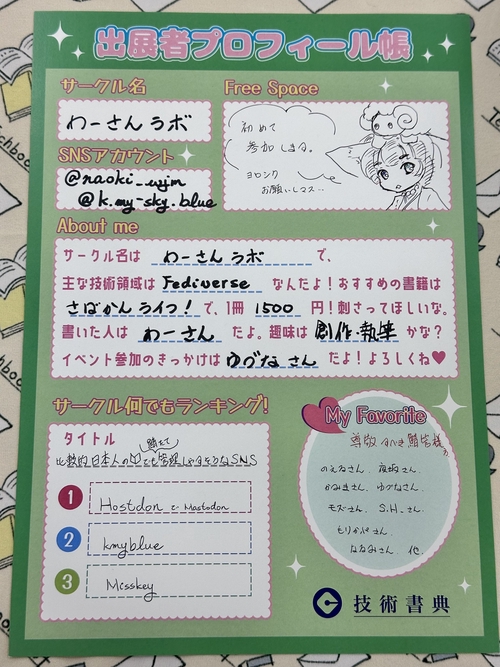 出展者プロフィール帳
サークル名
わーさんラボ
SNSアカウント
@naoki_wjm
@k.my-sky.blue
Free Space
初めて
参加します。
ヨロシク
お願いしマス…
About me
サークル名は わーさんラボ で、
主な技術領域は Fediverse なんだよ！おすすめの書籍は
さばかんライフ！ で、1冊 1500 円！刺さってほしいな。
書いた人は わーさん だよ。趣味は 創作・執筆 かな？
イベント参加のきっかけは ゆづな さん だよ！よろしくね♥
サークル何でもランキング！
タイトル
比較的日本人の でも管理しやすそうなSNS
1 Hostdon で Mastodon
2 kmyblue
3 Misskey
My Favorite
尊敬すべき鯖缶様方
のえるさん、 さん
かみきさん、ゆづなさん
モズさん、S.H.さん
もりかぷさん
ななみさん 他
技術書典